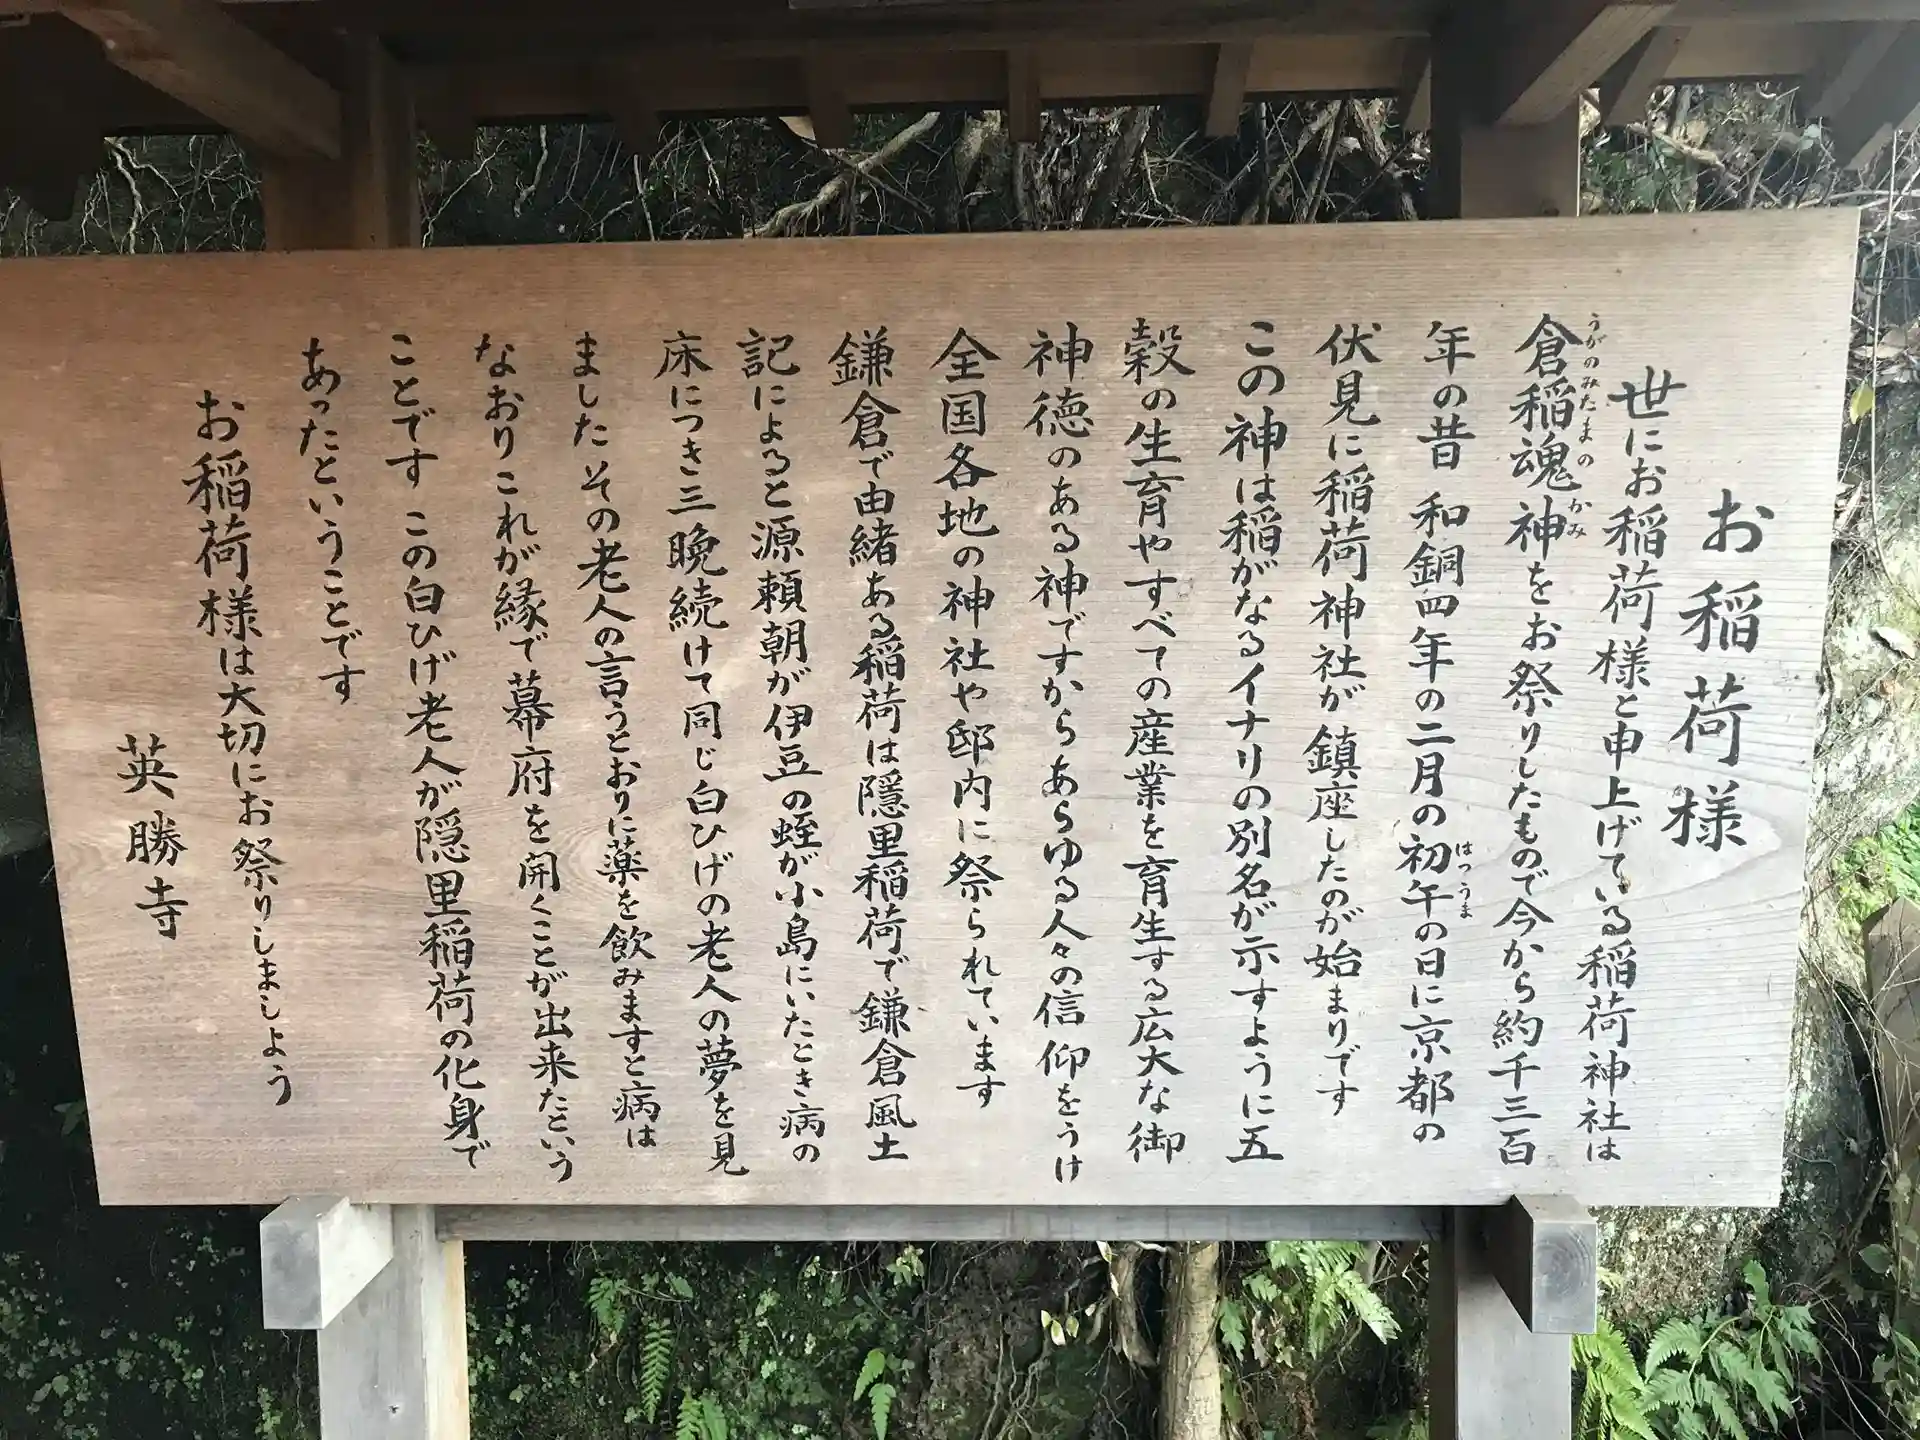 お稲荷様
世にお稲荷様と申上げている稲荷神社は
倉稲魂神をお祭りしたもので今から約千三百
うがのみたまの かみ
年の昔 和銅四年の二月の初午の日に京都の
はつうま
伏見に稲荷神社が鎮座したのが始まりです
この神は稲がなるイナリの別名が示すように五
穀の生育やすべての産業を育生する広大な御
神徳のある神ですからあらゆる人々の信仰をうけ
全国各地の神社や邸内に祭られています
鎌倉で由緒ある稲荷は隠里稲荷で鎌倉風土
記によると源頼朝が伊豆の蛭が小島にいたとき病の
床につき三晩続けて同じ白ひげの老人の夢を見
ました その老人の言うとおりに薬を飲みますと病は
なおりこれが縁で幕府を開くことが出来たという
ことです この白ひげ老人が隠里稲荷の化身で
あったということです
お稲荷様は大切にお祭りしましよう
英勝寺